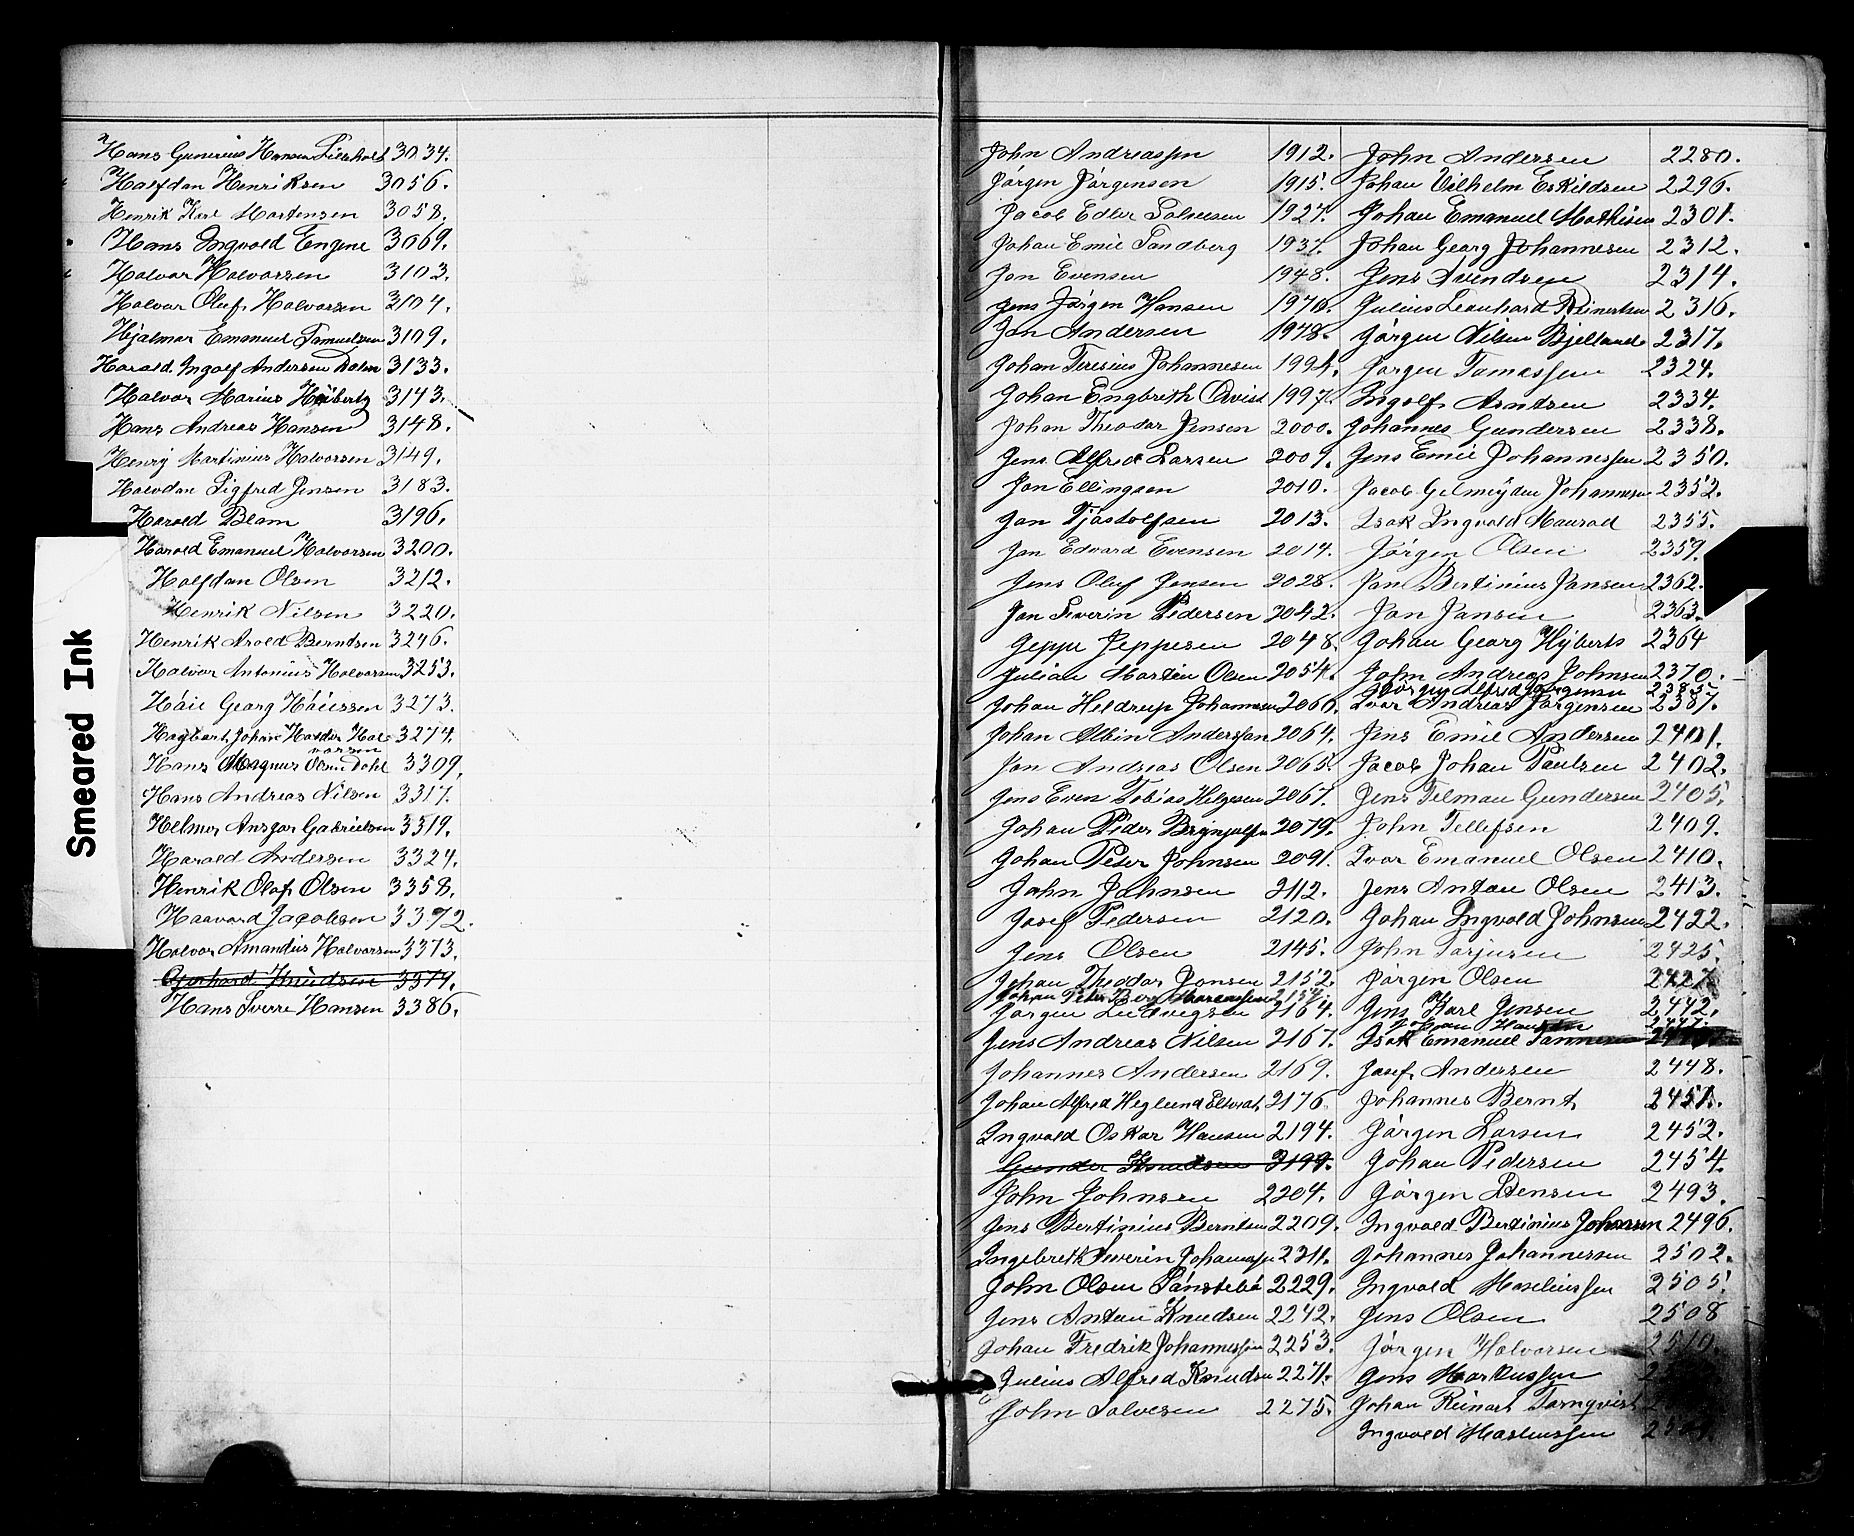 Smeared Ink
Hans Gunerius Hansen 3034.
Halfdan Henriksen 3056.
Henrik Karl Mortensen 3058.
Hans Ingvald Engene 3069.
Halvor Halvorsen 3103.
Halvor Oluf Halvorsen 3104.
Hjalmar Emanuel Samuelsen 3109.
Harald Ingolf Andersen Dalen 3133.
Halvor Marius Hüberty 3143.
Hans Andreas Hansen 3148.
Henry Martinius Halvorsen 3149.
Halvdan Sigfred Jensen 3183.
Harald Blam 3196.
Harald Emanuel Halvorsen 3200.
Halfdan Olsen 3212.
Henrik Nilsen 3220.
Henrik Arold Berndsen 3246.
Halvor Antonius Halvorsen 3253.
Håie Georg Håiessen 3273.
Hagbart Johan Halder Hal- 3274.
vorsen
Hans Magnus Olsen Dahl 3309.
Hans Andreas Nilsen 3317.
Helmer Ansgar Gabrielsen 3319.
Harald Andersen 3324.
Henrik Olaf Olsen 3358.
Haavard Jacobsen 3372.
Halvor Amandus Halvorsen 3373.
Gerhard Knudsen 3374.
Hans Sverre Hansen 3386.
John Andreassen 1912.
Jørgen Jørgensen 1915.
Jacob Edler Salvesen 1927.
Johan Emil Sandberg 1937.
Jon Evensen 1948.
Jens Jørgen Hansen 1976.
Jan Andersen 1948.
Johan Teresius Johannesen 1994.
Johan Engbreth Qvist 1997.
Johan Theodor Jensen 2000.
Jens Alfred Larsen 2009.
Jan Ellingsen 2010.
Jan Tjøstolfsen 2013.
Jan Edvard Evensen 2014.
Jens Oluf Jensen 2028.
Jan Severin Pedersen 2042.
Jeppe Jeppesen 2048.
Julian Martin Olsen 2054.
Johan Heldrup Johannesen 2060.
Johan Albin Anderssan 2064.
Jan Andreas Olsen 2065.
Jens Even Tobias Helgesen 2067.
Johan Peder Brynjolfsen 2079.
Johan Peter Johnsen 2091.
John Johnsen 2112.
Josef Pedersen 2120.
Jens Olsen 2145.
Johan Theodor Jonsen 2152.
Johan Peter Berg
Jørgen Ludvigsen 2164.
Jens Andreas Nilsen 2167.
Johannes Andersen 2169.
Johan Alfred Heglund 2176.
Ingvald Oskar Hansen 2194.
Gunder Knudsen 3199.
John Johnsen 2204.
Jens Bertinius Berntsen 2209.
Ingebreth Severin 2211.
John Olsen 2229.
Jens Antan Knudsen 2242.
Johan Fredrik Johannessen 2253.
Julius Alfred Knudsen 2271.
John Salvesen 2275.
John Andersen 2280.
Johan Vilhelm Eskildsen 2296.
Johan Emanuel Mathisen 2301.
Johan Georg Johannesen 2312.
Jens Svendsen 2314.
Julius Leonhard Reinertsen 2316.
Jørgen Nilsen Bjelland 2317.
Jørgen Tomassen 2324.
Ingolf Arntsen 2334.
Johannes Gundersen 2338.
Jens Emil Johannessen 2350.
Jacob Gelmeyden Johannesen 2352.
Isak Ingvald Maurod 2355.
Jørgen Olsen 2359.
Jan Bertinius Jansen 2362.
Jan Jansen 2363.
Johan Georg Hyberts 2364
John Andreas Johnsen 2370.
Jørgen Alfred Jørgensen 2385.
Ivar Andreas Jørgensen 2387.
Jens Emil Andersen 2401.
Jacob Johan Paulsen 2402.
Jens Telman Gundersen 2405.
John Tellefsen 2409.
Ivar Emanuel Olsen 2410.
Jens Antan Olsen 2413.
Johan Ingvald Johnsen 2422.
John Torjusen 2425.
Jørgen Olsen 2427.
Jens Karl Jensen 2442.
Johan Hansen 2447.
Isak Emanuel Tønnesen
Josef Andersen 2448.
Johannes Bernt 2451.
Jørgen Larsen 2452.
Johan Pedersen 2454.
Jørgen Densen 2493.
Ingvald Bertinius Johnsen 2496.
Johannes Johannessen 2502.
Ingvald Maseliussen 2505.
Jens Olsen 2508
Jørgen Halvorsen 2510.
Jens Markussen
Johan Reinart Tørnqvist
Ingvald Masliussen